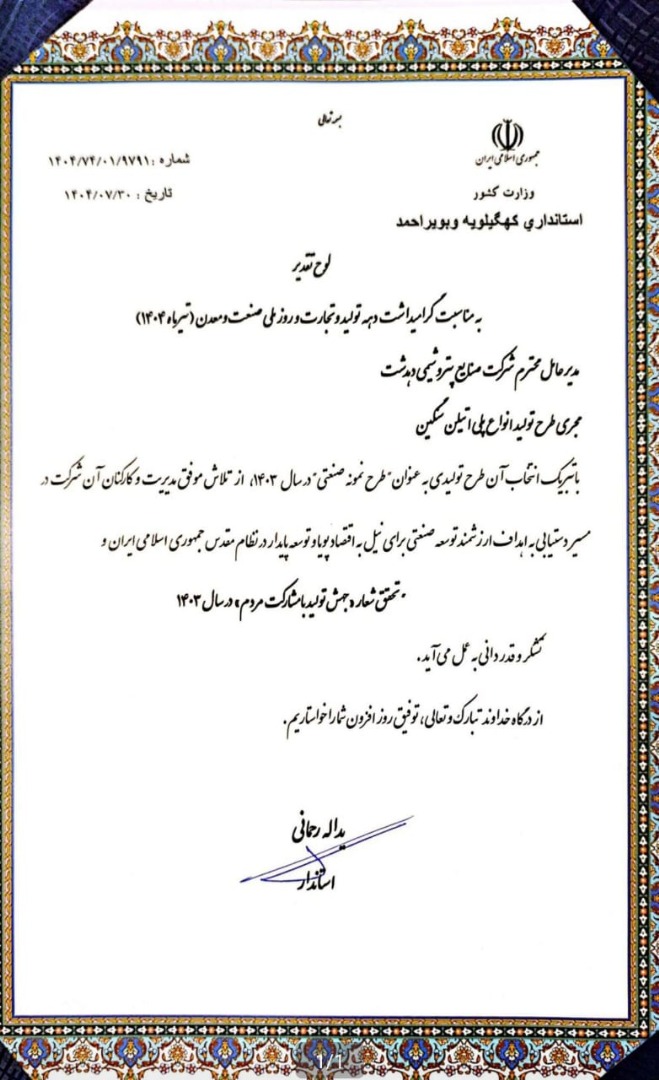 بسمه تعالی
جمهوری اسلامی ایران
وزارت کشور
استانداري کهگیلویه وبویراحمد
شماره :۱۴۰۴/۷۴/۰۱/۹۷۹۱
تاریخ : ۱۴۰۴/۰۷/۳۰
لوح تقدیر
به مناسبت گرامیداشت دهه تولید و تجارت و روز ملی صنعت و معدن (تیرماه ۱۴۰۴)
مدیرعامل محترم شرکت صنایع پتروشیمی دهدشت
مجری طرح تولید انواع پلی اتیلن سنگین
با تبریک انتخاب آن طرح تولیدی به عنوان "طرح نمونه صنعتی" در سال ۱۴۰۳، از تلاش موفق مدیریت و کارکنان آن شرکت در
مسیر دستیابی به اهداف ارزشمند توسعه صنعتی برای نیل به اقتصاد پویا و توسعه پایدار در نظام مقدس جمهوری اسلامی ایران و
تحقق شعار «جهش تولید با مشارکت مردم» در سال ۱۴۰۳
تشکر و قدردانی به عمل می‌آید.
از درگاه خداوند تبارک و تعالی، توفیق روز افزون شما را خواستاریم.
یداله رحمانی
استاندار
1/1